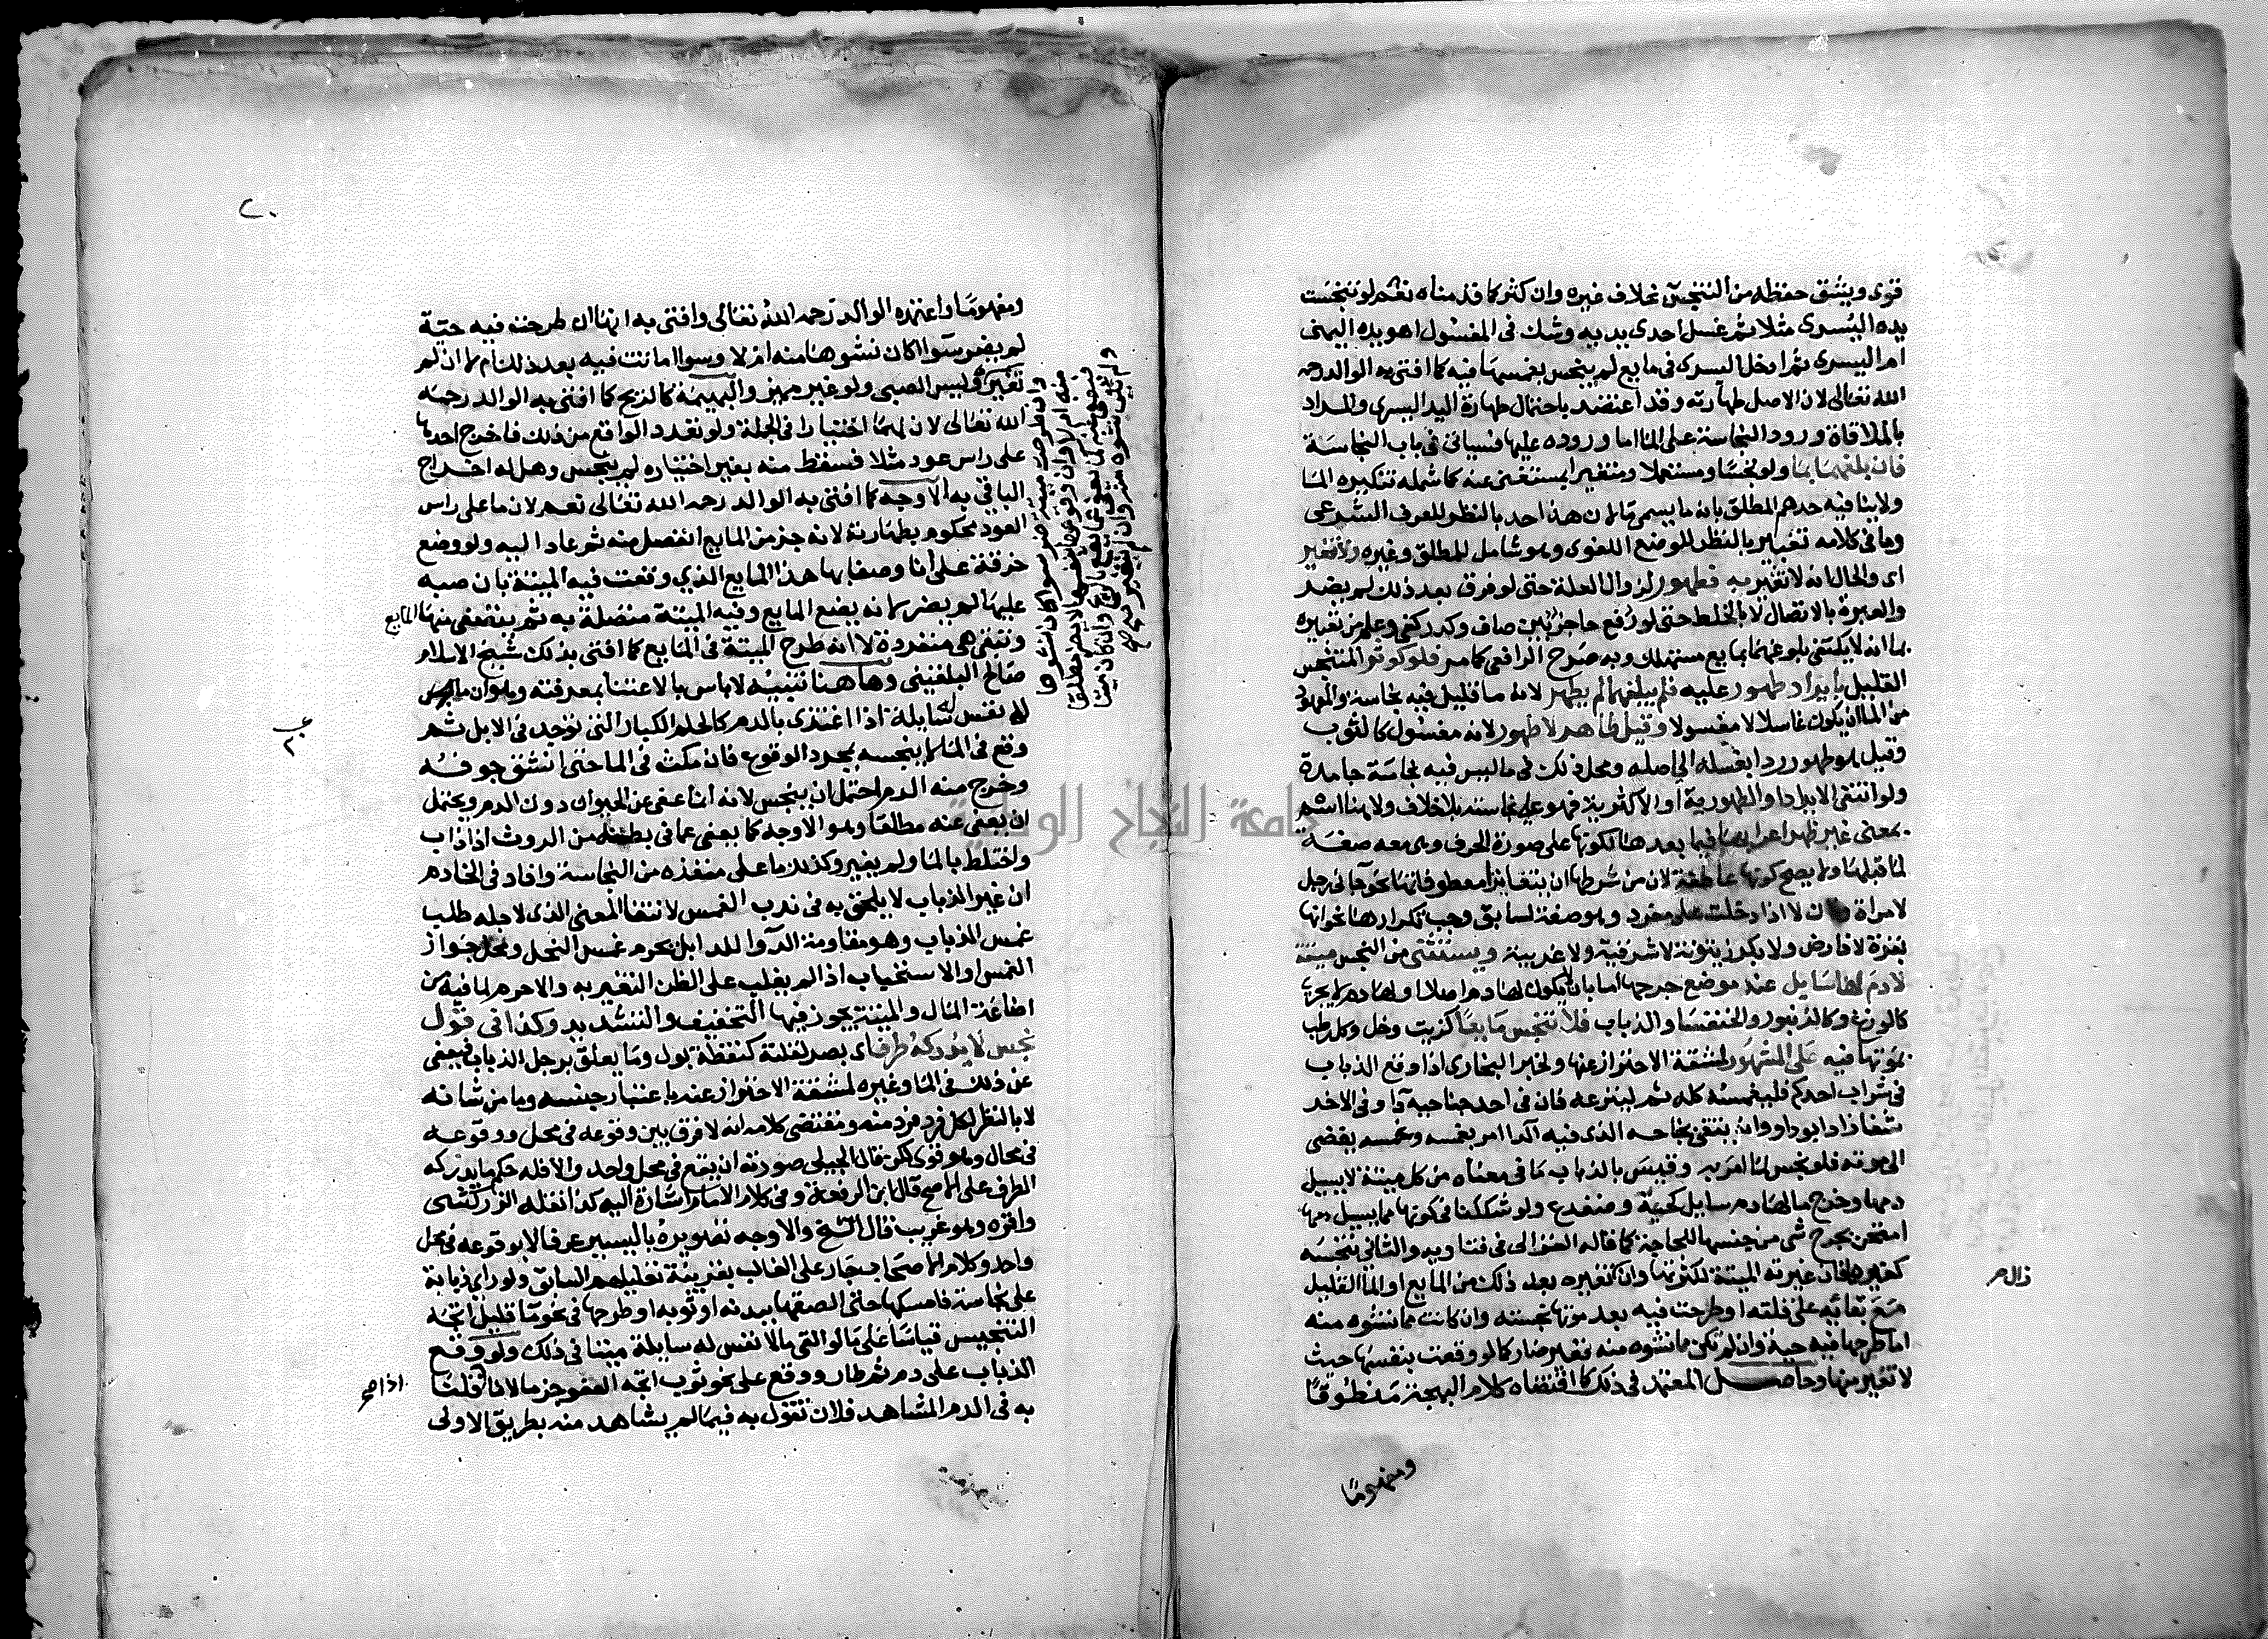 قوى ويشق حفظه من التنجس بخلاف غيره وان كثر كما قدمناه نعم لو تنجست
يده اليسرى مثلا ثم غسل احدى يديه وشك في المغسول اهو يده اليمنى
ام اليسرى ثم ادخل اليسرى في مايع لم ينجس بغمسها فيه كما افتى به الوالد رحمه
الله تعالى لان الاصل طهارته وقد اعتضد باحتمال طهارة اليد اليسرى والمراد
بالملاقاة ورود النجاسة على الما اما وروده عليها فسياتى في باب النجاسة
فان بلغهما بما ولو نجسا ومستعملا ومتغيرا بمستغنى عنه كما شمله تنكيره الما
ولا ينافيه حدهم المطلق بانه ما يسمى ما لان هذا حد بالنظر للعرف الشرعى
وما في كلامه تغيير بالنظر للوضع اللغوى وهو شامل للمطلق وغيره ولا تغير
اى والحال انه لا تغير به فطهور لزوال العلة حتى لو فرق بعد ذلك لم يضر
والعبرة بالاتصال لا بالخلط حتى لو رفع حاجز بين صاف وكدر كفى وعلم من تعبيره
بما انه لا يكتفى بلوغهما بمايع مستهلك وبه صرح الرافعى كما مر فلو كوثر المتنجس
القليل بايراد طهور عليه فلم يبلغهما لم يطهر لانه ما قليل فيه نجاسة والمعهود
من الما ان يكون غاسلا لا مغسولا وقيل طاهر لا طهور لانه مغسول كالثوب
وقيل هو طهور ردا بغسله الى اصله ومحل ذلك في ما ليس فيه نجاسة جامدة
ولو انتفى الايراد او الطهورية او الاكثرية فهو على نجاسته بلا خلاف ولا هنا اسم
بمعنى غير ظهر اعرابها فيما بعدها لكونها على صورة الحرف وهى معه صفة
لما قبلها ولا يصح كونها عاطفة لان من شرطها ان يتغاير متعاطفاها نحو جانى رجل
لا مراة لان لا اذا دخلت على مفرد وهو صفة لسابق وجب تكرارها نحو انها
بقرة لا فارض ولا بكر زيتونة لا شرقية ولا غربية ويستثنى من النجس ميتة
لا دم لها سايل عند موضع جرحها اما بان لا يكون لها دم اصلا او لها دم لا يجرى
كالوزغ وكالزنبور والخنفسا والذباب فلا تنجس مايعا كزيت وخل وكل رطب
بموتها فيه على المشهور لمشقة الاحتراز عنها ولخبر البخارى اذا وقع الذباب
في شراب احدكم فليغمسه كله ثم لينزعه فان في احد جناحيه دآ وفي الاخر
شفا زاد ابو داود وانه يتقى بجناحه الذى فيه الدا امر بغمسه وغمسه يفضى
الى موته فلو نجس لما امر به وقيس بالذباب ما في معناه من كل ميتة لا يسيل
دمها وخرج ما لها دم سايل كحية وضفدع ولو شككنا في كونها مما يسيل دمها
امتحن بجرح شى من جنسها للحاجة كما قاله الغزالى في فتاويه والثانى تنجسه
كغيرها فان غيرته الميتة لكثرتها وان كان تغيره بعد ذلك من المايع او الما القليل
مع بقائه على قلته او طرحت فيه بعد موتها نجسته وان كانت مما نشوه منه
اما طرحها فيه حية وان لم تكن مما نشوه منه فغير ضار كما لو وقعت بنفسها حيث
لا تغير منها وحاصل المعتمد في ذلك كما اقتضاه كلام البهجة منطوقا
زال م
ومفهوما
ومفهوما واعتمده الوالد رحمه الله تعالى وافتى به انها ان طرحت فيه حية
لم يضر سوا كان نشوها منه ام لا وسوا ماتت فيه بعد ذلك ام لا ان لم
تغيره وليس الصبى ولو غير مميز والبهيمة كالريح كما افتى به الوالد رحمه
الله تعالى لان لهما اختيارا في الجملة ولو تعدد الواقع من ذلك فاخرج احدها
على راس عود مثلا فسقط منه بغير اختياره لم ينجس وهل له اخراج
الباقي به الاوجه كما افتى به الوالد رحمه الله تعالى نعم لان ما على راس
العود محكوم بطهارته لانه جزء من المايع انفصل منه ثم عاد اليه ولو وضع
خرقة على انا وصفا بها هذا المايع الذي وقعت فيه الميتة بان صبه
عليها لم يضر لانه يضع المايع وفيه الميتة متصلة به ثم يتصفى منها المايع
وتبقى هى منفردة لا انه طرح الميتة في المايع كما افتى بذلك شيخ الاسلام
صالح البلقينى وهاهنا تنبيه لا باس بالاعتنا بمعرفته وهو ان ما ليس
له نفس سايلة اذا اغتذى بالدم كالحلم الكبار التى توجد في الابل ثم
وقع في الما لا ينجسه بمجرد الوقوع فان مكث في الما حتى انشق جوفه
وخرج منه الدم احتمل ان ينجس لانه انما عفى عن الحيوان دون الدم ويحتمل
ان يعفى عنه مطلقا وهو الاوجه كما يعفى عما في بطنه من الروث اذا ذاب
واختلط بالما ولم يغير وكذا ما على منفذه من النجاسة وافاد في الخادم
ان غير الذباب لا يلحق به في ندب الغمس لانتفا المعنى الذى لاجله طلب
غمس الذباب وهو مقاومة الدوا للدا بل يحرم غمس النحل ومحل جواز
الغمس او الاستحباب اذا لم يغلب على الظن التغير به والا حرم لما فيه من
اضاعة المال والميتة يجوز فيها التخفيف والتشديد وكذا في قول
نجس لا يدركه طرف اى بصر لقلته كنقطة بول وما يعلق برجل الذباب فيعفى
عن ذلك في الما وغيره لمشقة الاحتراز عنه باعتبار جنسه وما من شانه
لا بالنظر لكل فرد فرد منه ومقتضى كلامه انه لا فرق بين وقوعه في محل ووقوعه
في محال وهو قوى لكن قال الجيلى صورته ان يقع في محل واحد والا فله حكم ما يدركه
الطرف على الاصح قال ابن الرفعة وفى كلام الامام اشارة اليه كذا نقله الزركشى
واقره وهو غريب قال الشيخ والاوجه تصويره باليسير عرفا لا بوقوعه في محل
واحد وكلام الاصحاب جار على الغالب بقرينة تعليلهم السابق ولو راى ذبابة
على نجاسة فامسكها حتى الصقها ببدنه او ثوبه او طرحها في نحو ما قليل اتجه
التنجيس قياسا على ما لو القى ما لا نفس له سايلة ميتا في ذلك ولو وقع
الذباب على دم ثم طار ووقع على نحو ثوب اتجه العفو جزما لانا قلنا
به في الدم المشاهد فلان نقول به فيما لم يشاهد منه بطريق الاولى
اذا صح
٢٠
جامعة النجاح الوطنية